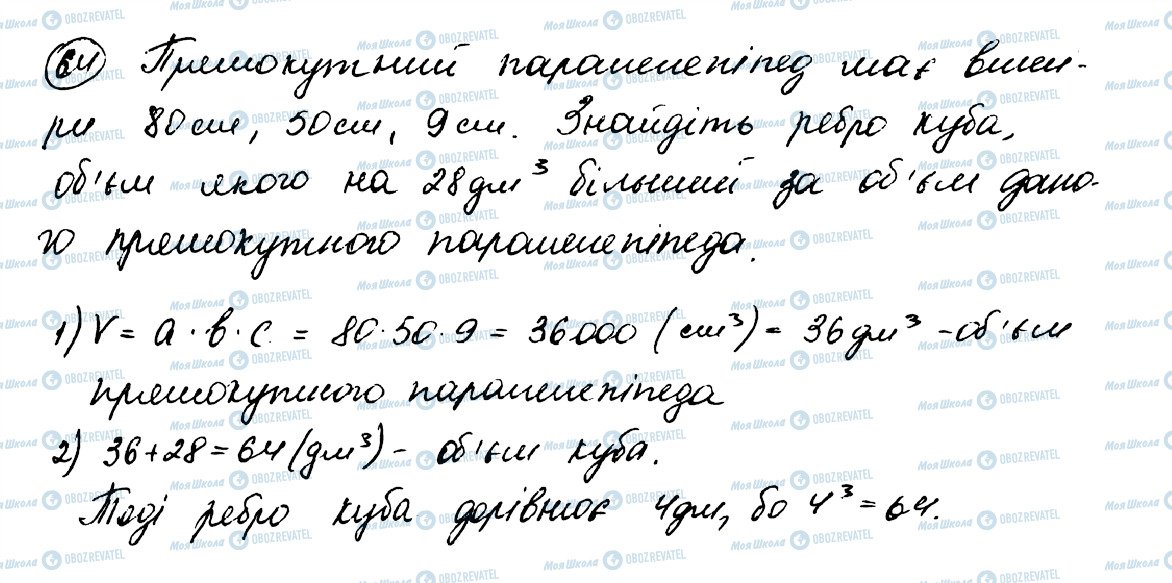 64 Прямокутний паралелепіпед має вимі-
ри 80см, 50см, 9см. Знайдіть ребро куба,
об'єм якого на 28дм³ більший за об'єм дано-
го прямокутного паралелепіпеда.
1) V = a · b · c = 80·50·9 = 36000 (см³) = 36дм³ - об'єм
прямокутного паралелепіпеда
2) 36+28=64(дм³) - об'єм куба.
Тоді ребро куба дорівнює 4дм, бо 4³=64.
Моя Школа OBOZREVATEL